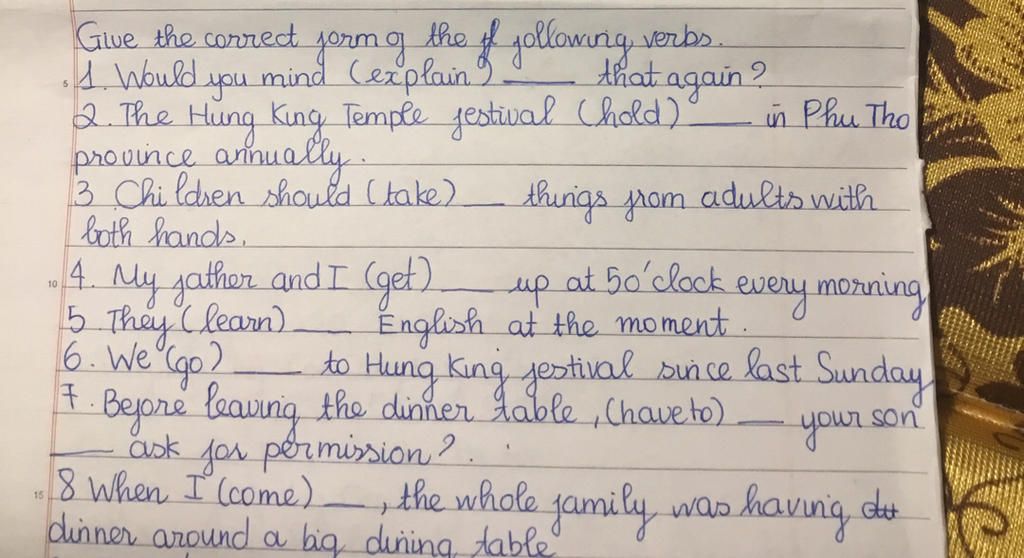 Give the correct form of the following verbs.
1. Would you mind (explain) ____ that again?
2. The Hung King Temple festival (hold) ____ in Phu Tho
province annually.
3 Children should (take) ___ things from adults with
both hands.
4. My father and I (get) ___ up at 5 o'clock every morning
5. They (learn) ____ English at the moment.
6. We (go) ____ to Hung King festival since last Sunday
7. Before leaving the dinner table, (have to) ___ your son
____ ask for permission?
8 When I (come) ___, the whole family was having
dinner around a big dining table
5
10
15